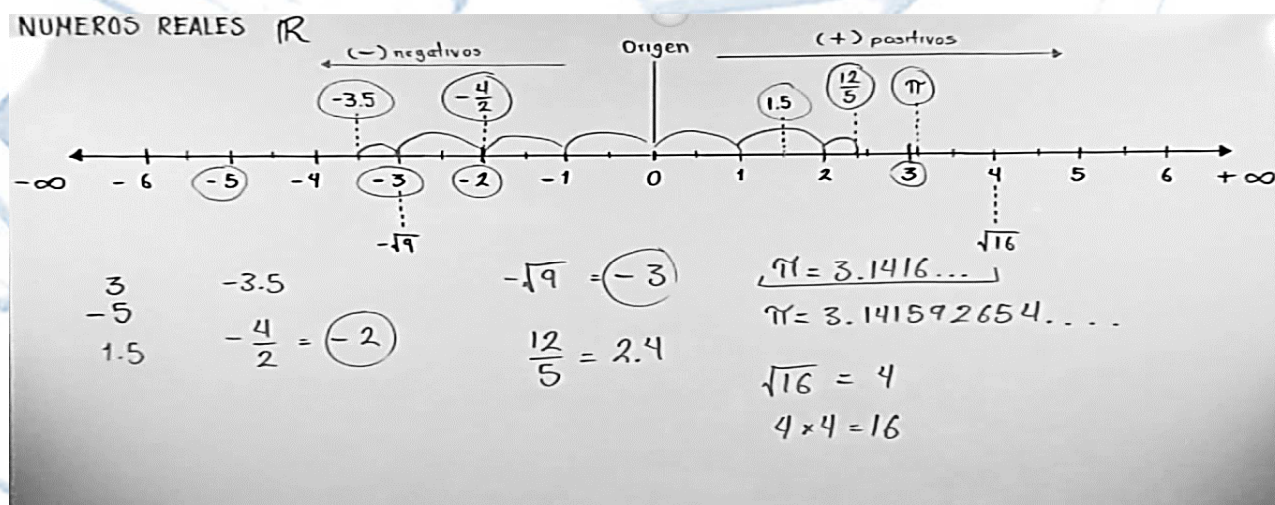 NUMEROS REALES ℝ
(-) negativos
Origen
(+) positivos
-3.5
-4/2
1.5
12/5
π
-∞ -6 -5 -4 -3 -2 -1 0 1 2 3 4 5 6 +∞
-√9
√16
3
-5
1.5
-3.5
-4/2 = -2
-√9 = -3
12/5 = 2.4
π = 3.1416...
π = 3.141592654....
√16 = 4
4×4 = 16